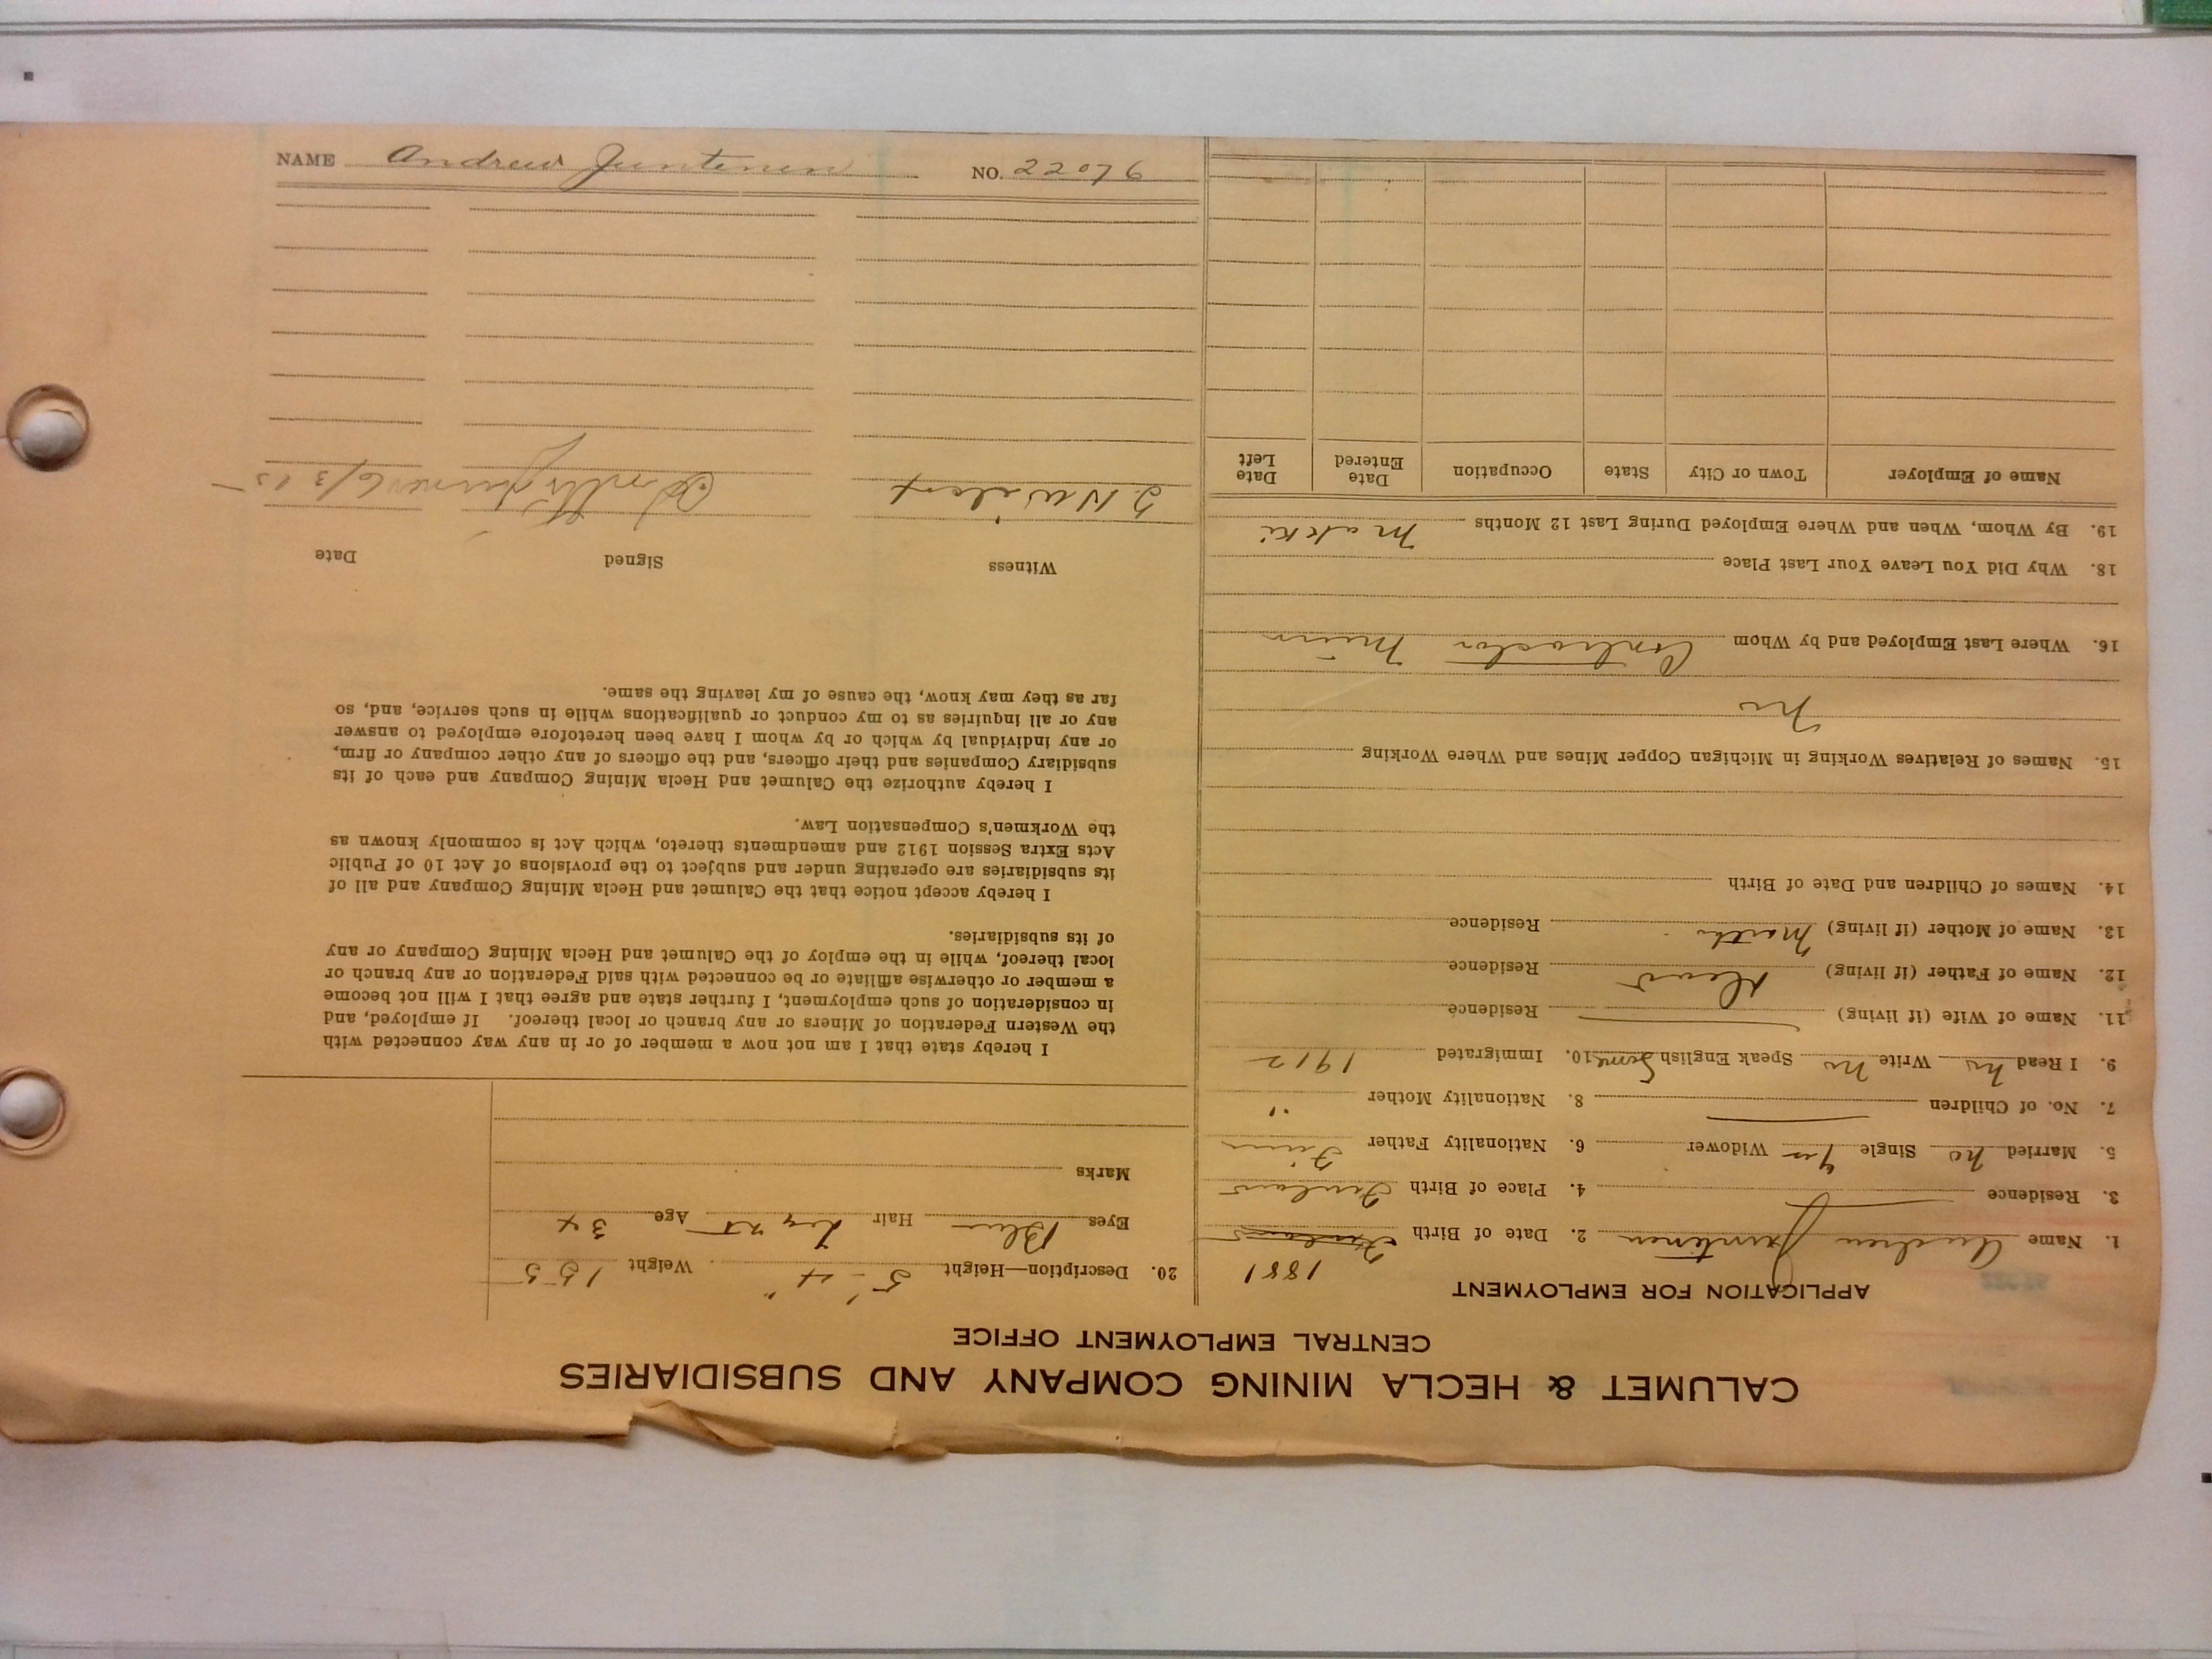 CALUMET & HECLA MINING COMPANY AND SUBSIDIARIES
CENTRAL EMPLOYMENT OFFICE
APPLICATION FOR EMPLOYMENT
1. Name Andrew Juntinen 2. Date of Birth Finland 1881
3. Residence 4. Place of Birth Finland
5. Married no Single yes Widower 6. Nationality Father Finn
7. No. of Children 8. Nationality Mother "
9. I Read no Write no Speak English Some 10. Immigrated 1912
11. Name of Wife (if living) Residence
12. Name of Father (if living) Residence
13. Name of Mother (if living) Martha Residence
14. Names of Children and Date of Birth
15. Names of Relatives Working in Michigan Copper Mines and Where Working
no
16. Where Last Employed and by Whom Contractor Minn
18. Why Did You Leave Your Last Place
19. By Whom, When and Where Employed During Last 12 Months Makki
Name of Employer Town or City State Occupation Date Entered Date Left
20. Description—Height 5' 4" Weight 155
Eyes Blue Hair Light Age 34
Marks
I hereby state that I am not now a member of or in any way connected with
the Western Federation of Miners or any branch or local thereof. If employed, and
in consideration of such employment, I further state and agree that I will not become
a member or otherwise affiliate or be connected with said Federation or any branch or
local thereof, while in the employ of the Calumet and Hecla Mining Company or any
of its subsidiaries.
I hereby accept notice that the Calumet and Hecla Mining Company and all of
its subsidiaries are operating under and subject to the provisions of Act 10 of Public
Acts Extra Session 1912 and amendments thereto, which Act is commonly known as
the Workmen's Compensation Law.
I hereby authorize the Calumet and Hecla Mining Company and each of its
subsidiary Companies and their officers, and the officers of any other company or firm,
or any individual by which or by whom I have been heretofore employed to answer
any or all inquiries as to my conduct or qualifications while in such service, and, so
far as they may know, the cause of my leaving the same.
Witness Signed Date
6/3 15
NAME Andrew Juntenen NO. 22076